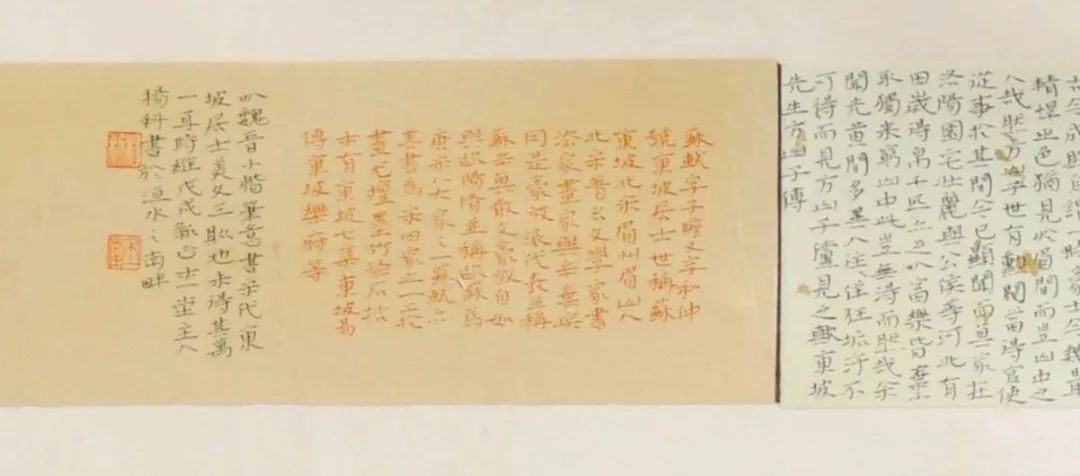 古今成敗自謂一時豪士今幾日耳
精悍之色猶見於眉間而豈山中之
人哉然方山子世有勳閥當得官使
從事於其間今已顯聞而其家在
洛陽園宅壯麗與公侯等河北有
田歲得帛千匹亦足以富樂皆棄不
取獨來窮山中此豈無得而然哉余
聞光黃間多異人往往佯狂垢汙不
可得而見方山子儻見之歟東坡
先生方山子傳
蘇軾字子瞻又字和仲
號東坡居士世稱蘇
東坡北宋眉州眉山人
北宋著名文學家書
法家畫家與辛棄疾
同是豪放派代表並稱
蘇辛其散文豪放自如
與歐陽脩並稱歐蘇為
唐宋八大家之一蘇軾亦
善書為宋四家之一工於
畫尤擅墨竹怪石枯
木有東坡七集東坡易
傳東坡樂府等
以魏晉小楷筆意書宋代東
坡居士美文三也未得其萬
一耳時維戊戌新正士一堂主人
楊科書於洹水之南畔